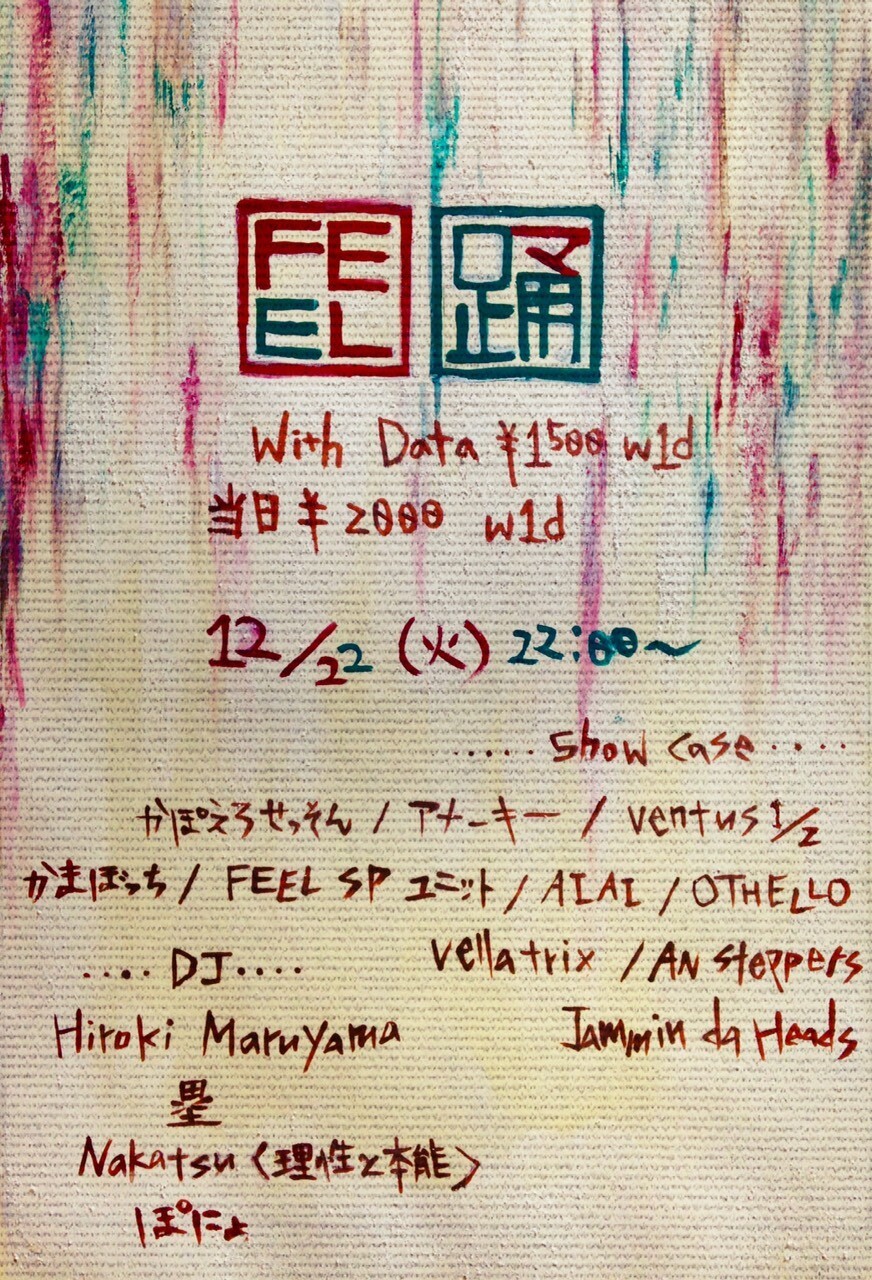 FEEL 踊
With Data ¥1500 w1d
当日 ¥2000 w1d
12/22 (火) 22:00〜
.....show case....
かぽえろせっそん / アナーキー / ventus 1/2
かまぼっち / FEEL SP ユニット / AIAI / OTHELLO
vellatrix / AN steppers
Jammin da Heads
....DJ....
Hiroki Maruyama
塁
Nakatsu <理性と本能>
ぽにょ